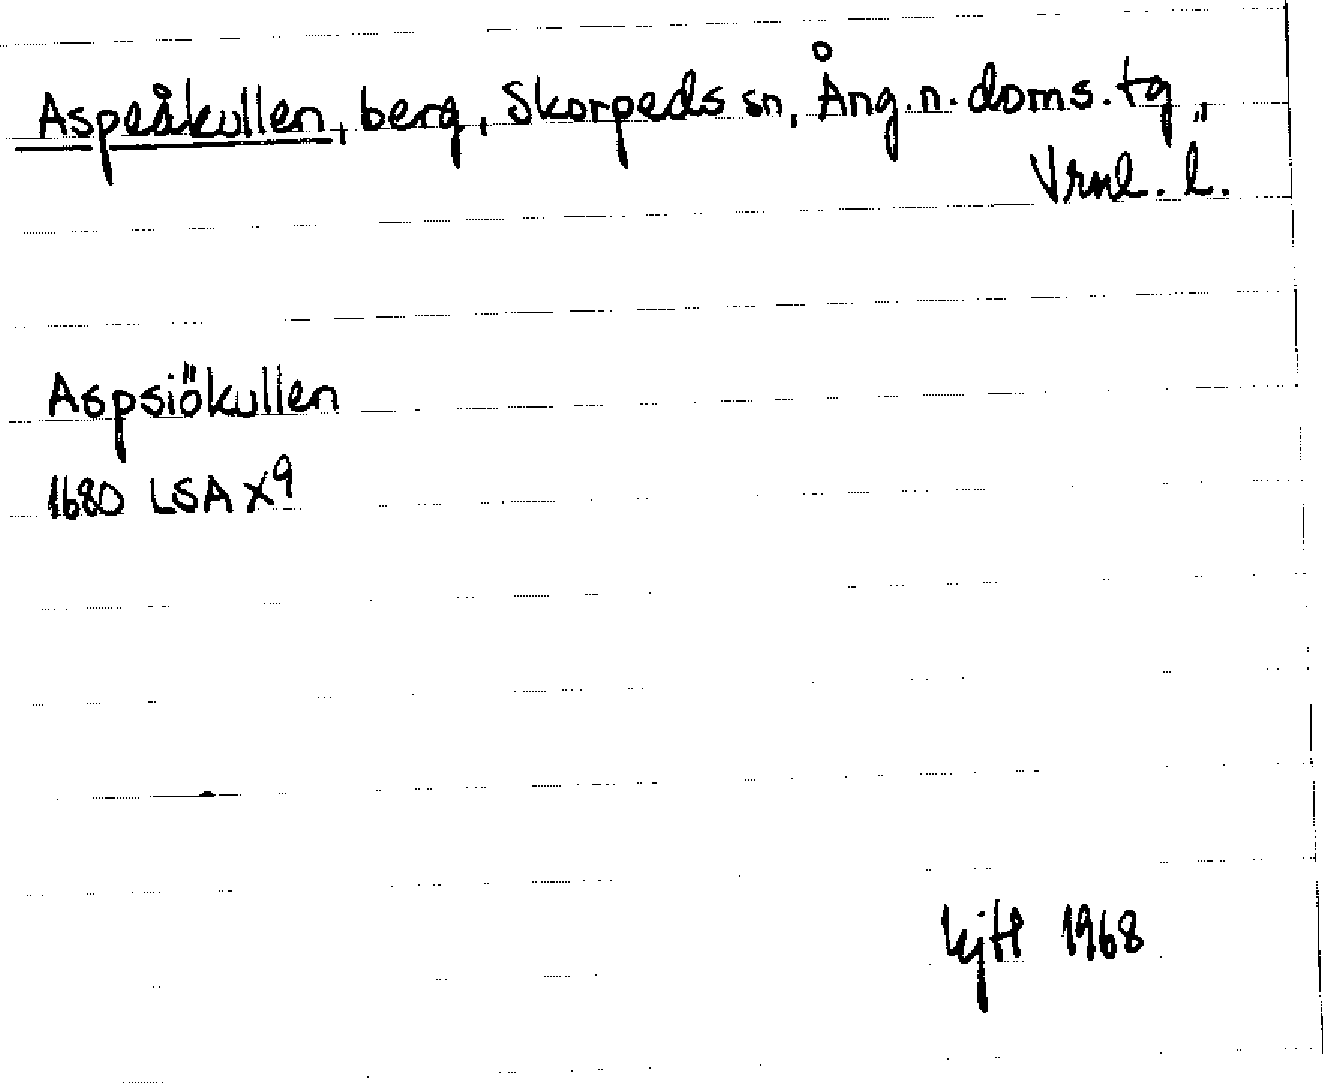 Aspeåkullen, berg, Skorpeds sn, Ång. n. doms. tg,
Vrnl. l.
Aspsiökullen
1680 LSA X9
1968